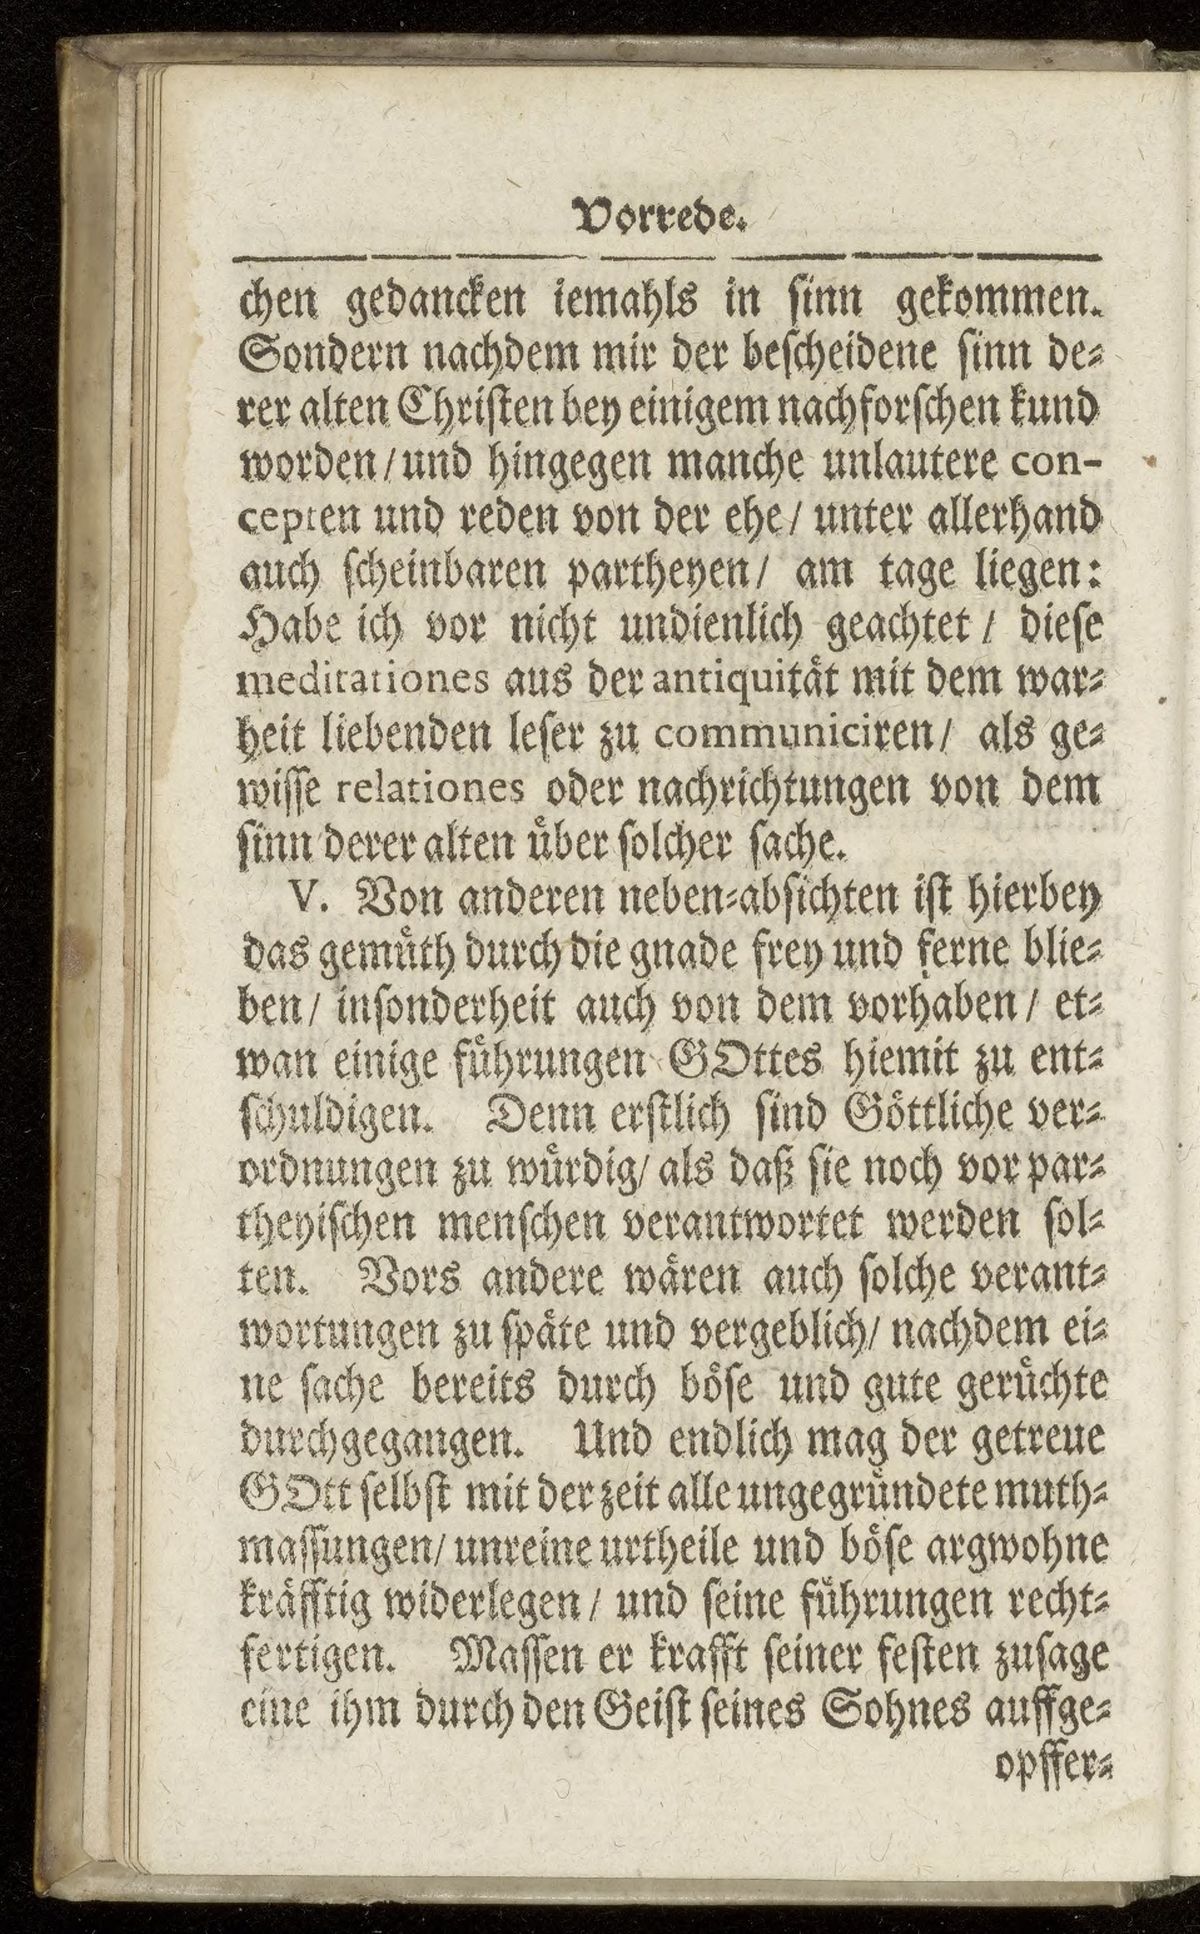 Vorrede.
chen gedancken iemahls in sinn gekommen.
Sondern nachdem mir der bescheidene sinn de-
rer alten Christen bey einigem nachforschen kund
worden / und hingegen manche unlautere con-
cepten und reden von der ehe / unter allerhand
auch scheinbaren partheyen / am tage liegen:
Habe ich vor nicht undienlich geachtet / diese
meditationes aus der antiquität mit dem war-
heit liebenden leser zu communiciren / als ge-
wisse relationes oder nachrichtungen von dem
sinn derer alten über solcher sache.
V. Von anderen neben-absichten ist hierbey
das gemüth durch die gnade frey und ferne blie-
ben / insonderheit auch von dem vorhaben / et-
wan einige führungen GOttes hiemit zu ent-
schuldigen. Denn erstlich sind Göttliche ver-
ordnungen zu würdig / als daß sie noch vor par-
theyischen menschen verantwortet werden sol-
ten. Vors andere wären auch solche verant-
wortungen zu späte und vergeblich / nachdem ei-
ne sache bereits durch böse und gute gerüchte
durchgegangen. Und endlich mag der getreue
GOtt selbst mit der zeit alle ungegründete muth-
massungen / unreine urtheile und böse argwohne
kräfftig widerlegen / und seine führungen recht-
fertigen. Massen er krafft seiner festen zusage
eine ihm durch den Geist seines Sohnes auffge-
opffer-